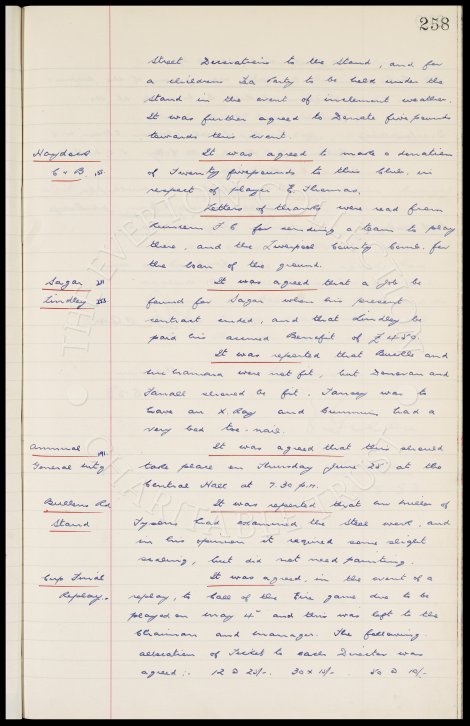 258
Street Decorations to the Stand, and for
a childrens Tea Party to be held under the
Stand in the event of inclement weather.
It was further agreed to Donate five pounds
towards this event.
Haydock
C & B
It was agreed to make a donation
of Twenty five pounds to this Club, in
respect of player E. Thomas.
Letters of thanks were read from
F C for sending a team to play
there, and the Liverpool County Comb. for
the loan of the ground.
Sagar
Lindley
It was agreed that a job be
found for Sagar when his present
contract ended, and that Lindley be
paid his accrued Benefit of £450.
It was reported that Buckle and
were not fit, but Donovan and
Farrall should be fit. Tansey was to
have an X. Ray and Cummins had a
very bad toe-nail.
Annual
General Mtg
It was agreed that this should
take place on Thursday June 28 at the
Central Hall at 7.30 p.m.
Bullens Rd
Stand
It was reported that
Tysons had examined the steel work, and
in his opinion it required some slight
scaling, but did not need painting.
Cup Final
Replay.
It was agreed, in the event of a
replay, to call off the Eire game due to be
played on May 4th and this was left to the
Chairman and manager. The following
allocation of Ticket to each Director was
agreed:- 12 @ 25/-. 30 x 10/-. 50 @
THE EVERTON
CHARITABLE TRUST